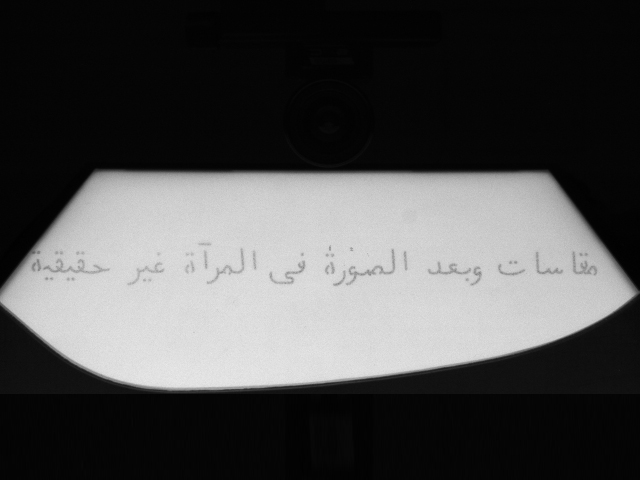 مقاسات وبعد الصورة فى المرآة غير حقيقية